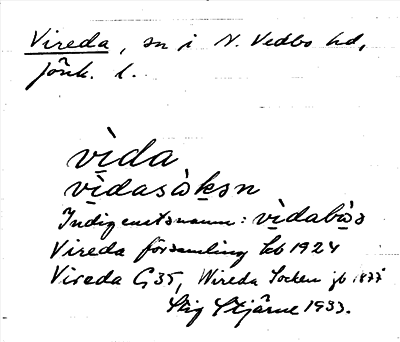 Vireda, sn i N. Vedbo hd,
Jönk. l.
vìda
vìdasàkən
Indigenatsnamn: vìdabàs
Vireda församling kb 1924
Vireda G35, Wireda Socken jb 1877
Stig Stjärne 1933.